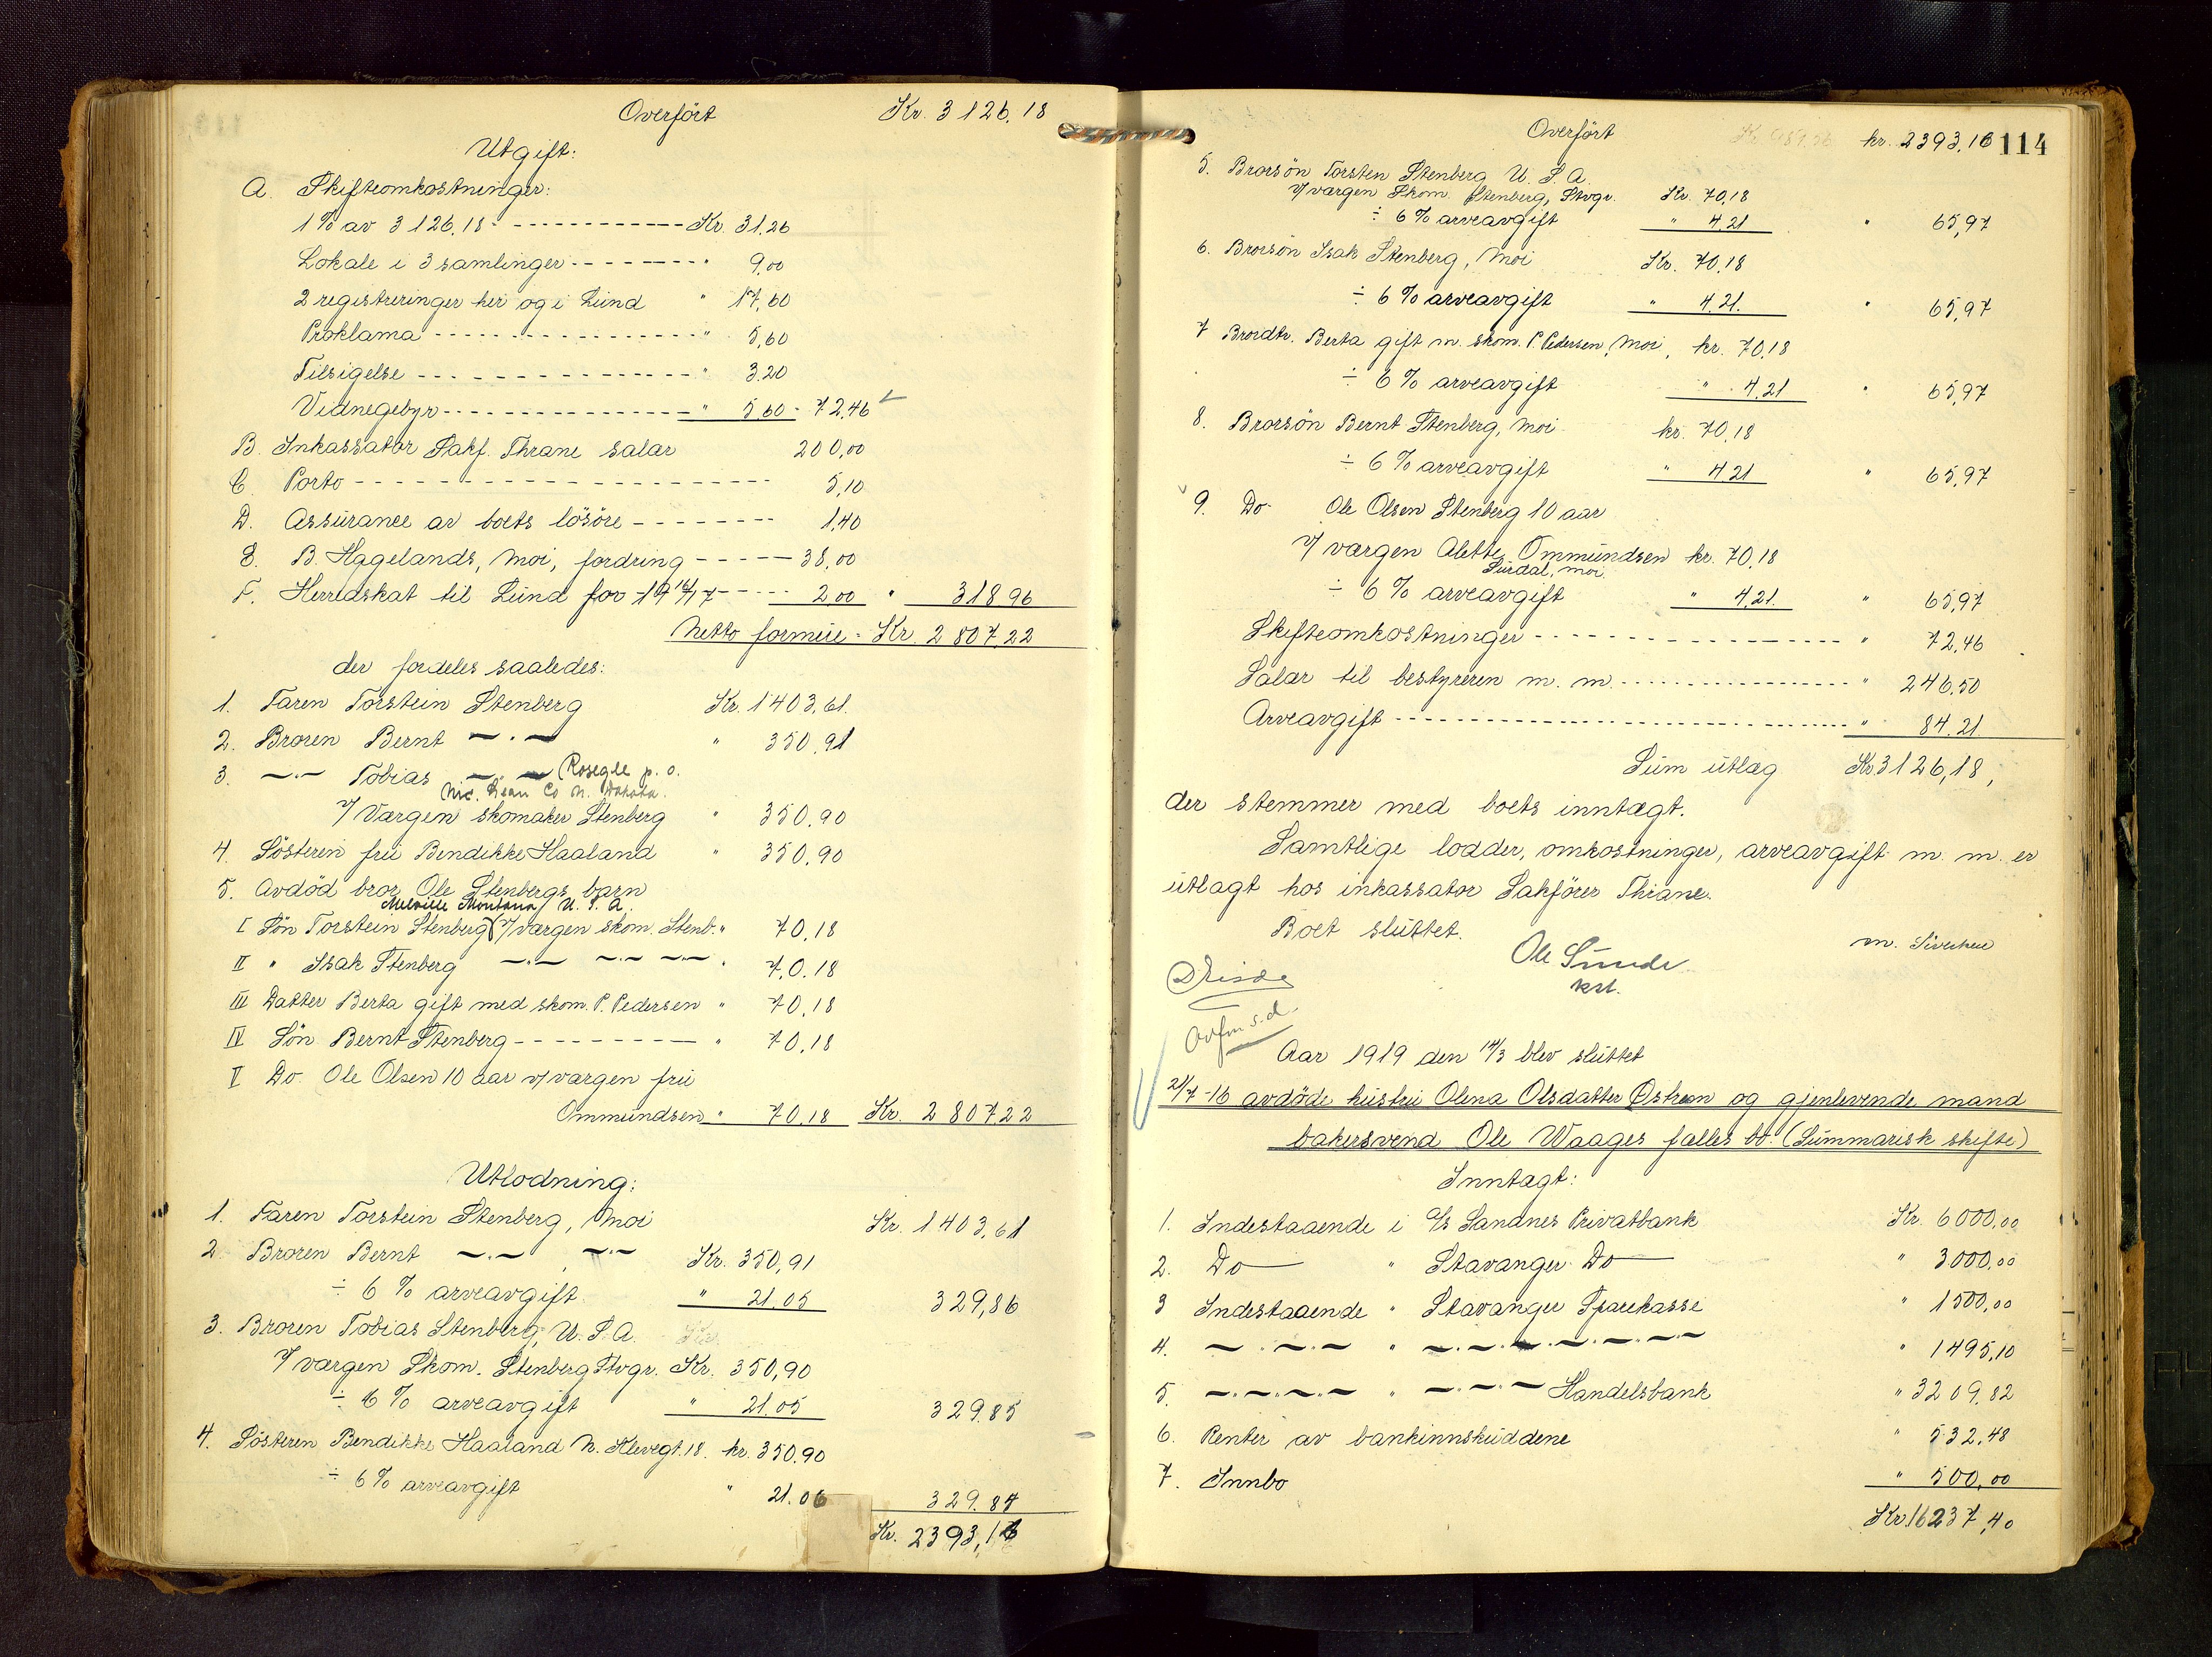 Overført Kr. 3126.18
Utgift:
A. Skifteomkostninger:
1% av 3126.18 - - - Kr. 31.26
Lokale i 3 samlinger - - - " 9.00
2 registreringer her og i Lund " 17.60
Proklama - - - " 5,60
Tilsigelse - - - " 3.20
Vidnegebyr - - - " 5.60 - 72.46
B. Inkassator Sakf. Thrane salær 200,00
C. Porto - - - 5,10
D. Assurance av boets lösöre - - - 1,40
E. B. Hggelands, Moi, fordring - - - 38,00
F. Herredskat til Lund for 1916/17 - - - 2,00 " 318 96
Netto formue - Kr. 2807.22
der fordeles saaledes:
1. Faren Torstein Stenberg Kr. 1403,61.
2. Broren Bernt —"— " 350.91
3. —"— Tobias —"— (Rosegle p.o.
Mc. Lean Co N. Dakota.
v/ Værgen skomaker Stenberg " 350.90
4. Sösteren fru Bendikke Haaland " 350,90
5. Avdöd bror Ole Stenbergs barn
Melville Montana, U.S.A.
I Sön Torstein Stenberg (v/ værgen skom. Stenb. " 70,18
II " Isak Stenberg —"— —"— —"— " 70.18
III Datter Berta gift med skom. P. Pedersen " 70,18
IV Sön Bernt Stenberg - - - " 70,18
V Do Ole Olsen 10 aar v/ værgen fru
Ommundsen " 70,18 Kr. 2807.22
Utlodning:
1. Faren Torstein Stenberg, Moi Kr. 1403,61
2. Broren Bernt —"— , —"— Kr. 350,91
÷ 6% arveavgift " 21.05 329,86
3. Broren Tobias Stenberg, U.S.A.
v/ værgen Skom. Stenberg Stvgr. Kr. 350,90
÷ 6% arveavgift " 21.05 329.85
4. Sösteren Bendikke Haaland N. Klevegt. 18. kr. 350.90
÷ 6% arveavgift " 21.06 329.84
Kr. 2393,16
Overført kr. 2393,16 114
5. Brorsön Torsten Stenberg U.S.A.
v/ værgen Skom. Stenberg, Stvgr. Kr. 70,18
÷ 6% arveavgift " 4,21 " 65,97
6. Brorsön Isak Stenberg, Moi Kr. 70,18
÷ 6% arveavgift " 4.21. " 65,97
7 Brordtr. Berta gift m. skom. P. Pedersen, Moi, kr. 70,18
÷ 6% arveavgift " 4,21 " 65,97
8. Brorsön Bernt Stenberg, Moi kr. 70,18
÷ 6% arveavgift " 4.21 " 65,97
9. Do Ole Olsen Stenberg 10 aar
v/ værgen Alette Ommundsen kr. 70,18
Surdal, Moi.
÷ 6% arveavgift " 4,21. " 65,97
Skifteomkostninger - - - " 72,46
Salær til bestyreren m. m. - - - " 246,50
Arveavgift - - - " 84.21
Sum utlæg Kr. 3126,18,
der stemmer med boets inntægt.
Samtlige lodder, omkostninger, arveavgift m. m. er
utlagt hos inkassator Sakförer Thrane.
Boet sluttet.
Ole Sunde m. Sivertsen
kst.
Avfm s.d.
Aar 1919 den 14/3 blev sluttet
21/7-16 avdöde hustru Olena Olsdatter Östrem og gjenlevende mand
bakersvend Ole Waages fælles bo. (Summarisk skifte)
Inntægt:
1. Indestaaende i A/S Sandnes Privatbank Kr. 6000,00
2. Do " Stavanger Do " 3000,00
3 Indestaaende " Stavanger Sparekasse " 1500,00
4. —"—"— " —"—"—"—"— " 1495,10
5. —"—"—"— " —"—"— Handelsbank " 3209,82
6. Renter av bankinnskuddene " 532,48
7. Innbo " 500,00
Kr. 16237,40